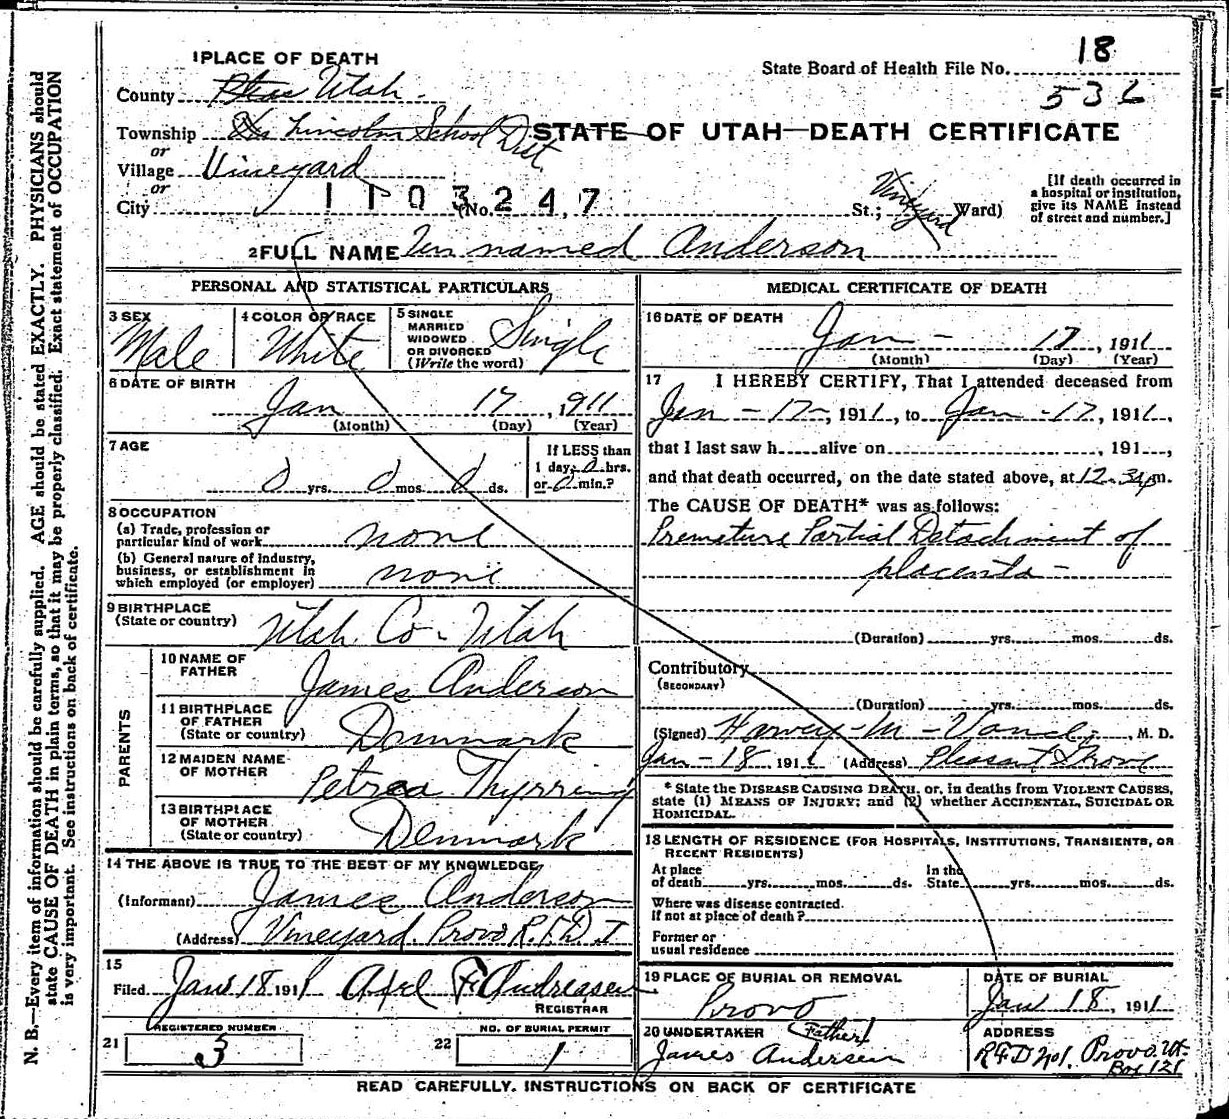 1 PLACE OF DEATH
State Board of Health File No. 18
County Utah
532
Township Lincoln School Dist.
STATE OF UTAH—DEATH CERTIFICATE
or
Village Vineyard
or
City 1103247 (No. St.; Vineyard Ward)
[If death occurred in a hospital or institution, give its NAME instead of street and number.]
2 FULL NAME Un named Anderson
PERSONAL AND STATISTICAL PARTICULARS
3 SEX
Male
4 COLOR OR RACE
White
5 SINGLE
MARRIED
WIDOWED
OR DIVORCED
(Write the word)
Single
6 DATE OF BIRTH
Jan 17, 1911
(Month) (Day) (Year)
7 AGE
0 yrs. 0 mos. 0 ds.
If LESS than
1 day, 0 hrs.
or 0 min.?
8 OCCUPATION
(a) Trade, profession or
particular kind of work none
(b) General nature of industry,
business, or establishment in
which employed (or employer) none
9 BIRTHPLACE
(State or country) Utah Co - Utah
PARENTS
10 NAME OF
FATHER James Anderson
11 BIRTHPLACE
OF FATHER
(State or country) Denmark
12 MAIDEN NAME
OF MOTHER Petrea Thyrring
13 BIRTHPLACE
OF MOTHER
(State or country) Denmark
14 THE ABOVE IS TRUE TO THE BEST OF MY KNOWLEDGE
(Informant) James Anderson
(Address) Vineyard. Provo R.F.D. 1
15
Filed Jan 18 1911 Axel F. Andreasen
REGISTRAR
REGISTERED NUMBER
21 3
NO. OF BURIAL PERMIT
22 1
MEDICAL CERTIFICATE OF DEATH
16 DATE OF DEATH
Jan - 17, 1911
(Month) (Day) (Year)
17 I HEREBY CERTIFY, That I attended deceased from
Jan - 17 -, 1911, to Jan - 17, 1911,
that I last saw h alive on , 191 ,
and that death occurred, on the date stated above, at 12.30 p m.
The CAUSE OF DEATH* was as follows:
Premature Partial Detachment of
placenta -
(Duration) yrs. mos. ds.
Contributory
(SECONDARY)
(Duration) yrs. mos. ds.
(Signed) Harvey - M - , M. D.
Jan - 18 1911 (Address) Pleasant Grove
* State the DISEASE CAUSING DEATH, or, in deaths from VIOLENT CAUSES,
state (1) MEANS OF INJURY; and (2) whether ACCIDENTAL, SUICIDAL OR
HOMICIDAL.
18 LENGTH OF RESIDENCE (FOR HOSPITALS, INSTITUTIONS, TRANSIENTS, OR
RECENT RESIDENTS)
At place
of death yrs. mos. ds.
In the
State yrs. mos. ds.
Where was disease contracted.
If not at place of death?
Former or
usual residence
19 PLACE OF BURIAL OR REMOVAL
Provo
DATE OF BURIAL
Jan 18, 1911
20 UNDERTAKER (Father)
James Andersen
ADDRESS
R F D No 1. Provo. Ut.
Box 121
READ CAREFULLY. INSTRUCTIONS ON BACK OF CERTIFICATE
N. B.—Every item of information should be carefully supplied. AGE should be stated EXACTLY. PHYSICIANS should
state CAUSE OF DEATH in plain terms, so that it may be properly classified. Exact statement of OCCUPATION
is very important. See instructions on back of certificate.